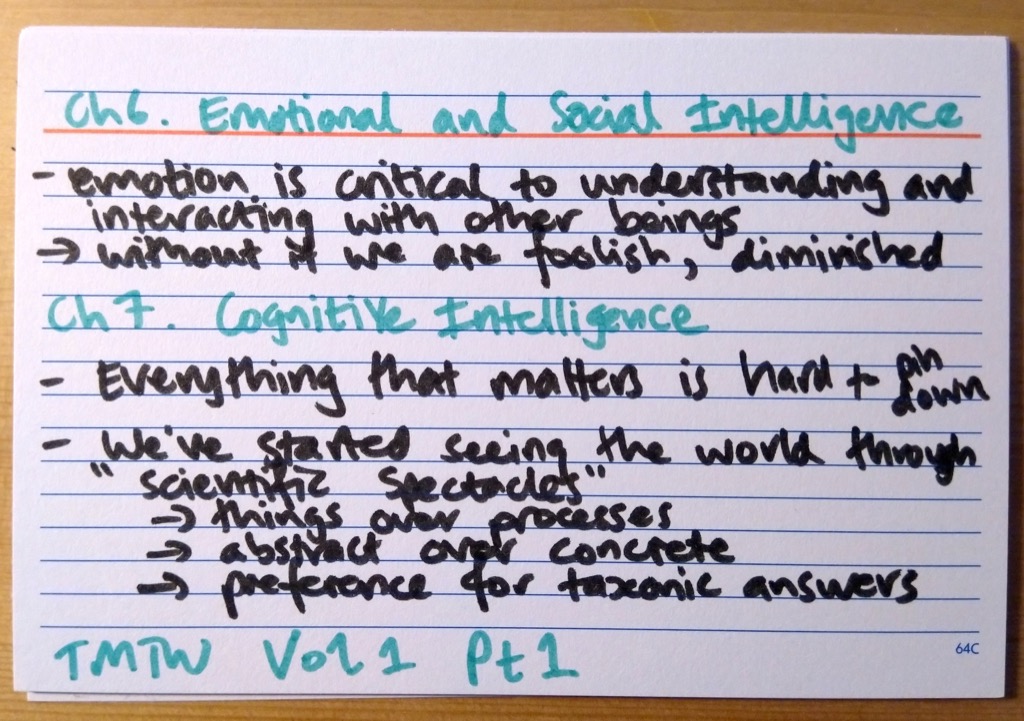 Ch6. Emotional and Social Intelligence
- emotion is critical to understanding and
interacting with other beings
→ without it we are foolish, diminished
Ch 7. Cognitive Intelligence
- Everything that matters is hard to pin
down
- We've started seeing the world through
"scientific spectacles"
→ things over processes
→ abstract over concrete
→ preference for taxonic answers
TMTW Vol 1 Pt 1
64C